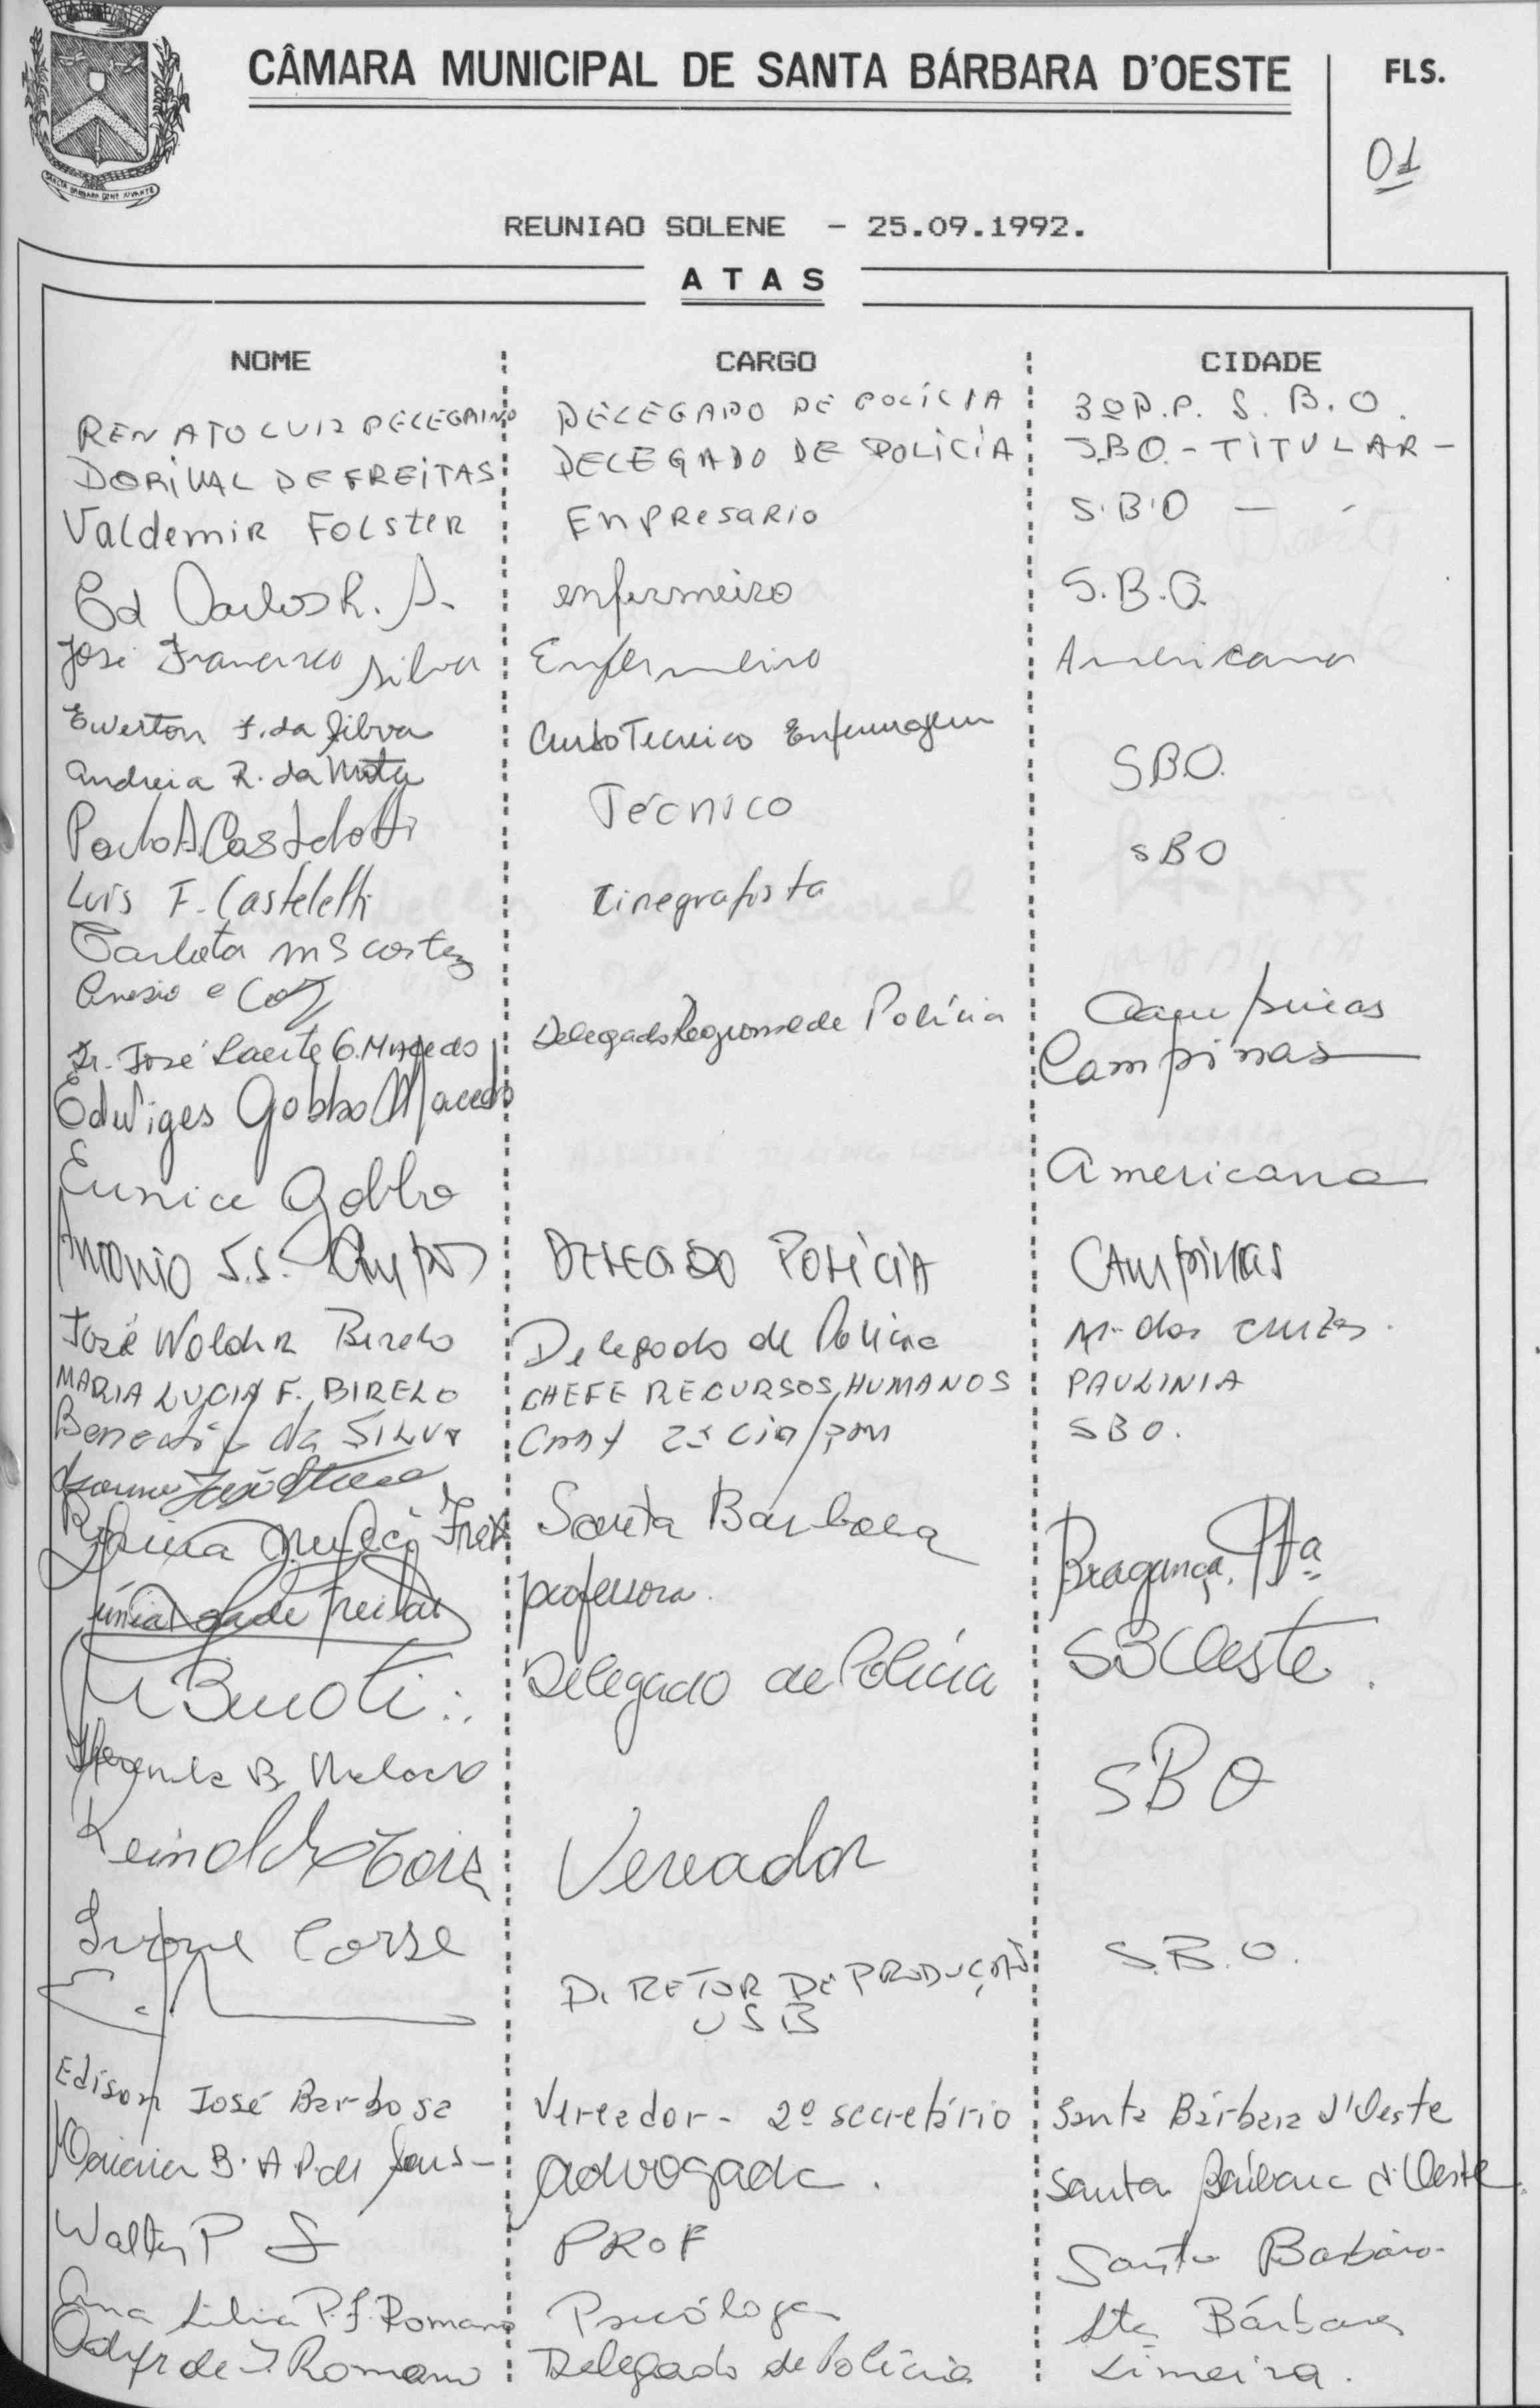 CÂMARA MUNICIPAL DE SANTA BÁRBARA D'OESTE
FLS.
01
REUNIAO SOLENE - 25.09.1992.
ATAS
NOME CARGO CIDADE
RENATO LUIZ PELEGRINO DELEGADO DE POLÍCIA 3º D.P. S.B.O.
DORIVAL DE FREITAS DELEGADO DE POLICIA SBO. - TITULAR -
Valdemir FOLSTER EnPResaRio S.B.O -
Ed Carlos R. enfermeiro S.B.O.
José Francisco Silva Enfermeiro Americana
Ewerton F. da Silva Curso Tecnico Enfermagem
Andreia R. da Mota SBO.
Paulo A. Casteloti Técnico SBO
Luis F. Casteletti Cinegrafista
Carlota M S Cortez
Dr. José Laerte G. Macedo Delegado Regional de Polícia Campinas
Edwiges Gobbo Macedo Campinas
Eunice Gobbo Americana
Antonio S.S. Campos DELEGADO POLICIA Campinas
José Woldir Birelo Delegado de Policia M. das Cruzes.
MARIA LUCIA F. BIRELO CHEFE RECURSOS HUMANOS PAULINIA
Benedito da SILVA Cmt 2ª Cia/PM SBO.
Santa Barbara
professora. Bragança Pta
Delegado de Polícia SBOeste.
SBO
Vereador
Ivone Corse
DIRETOR DE PRODUÇÃO S.B.O.
USB
Edison José Barbosa Vereador - 2º secretário Santa Bárbara d'Oeste
advogada. Santa Bárbara d'Oeste
Walter P PROF Santa Barbara
Ana Lilia P. F. Romano Psicóloga Sta Bárbara
Odyr de J. Romano Delegado de Polícia Limeira.